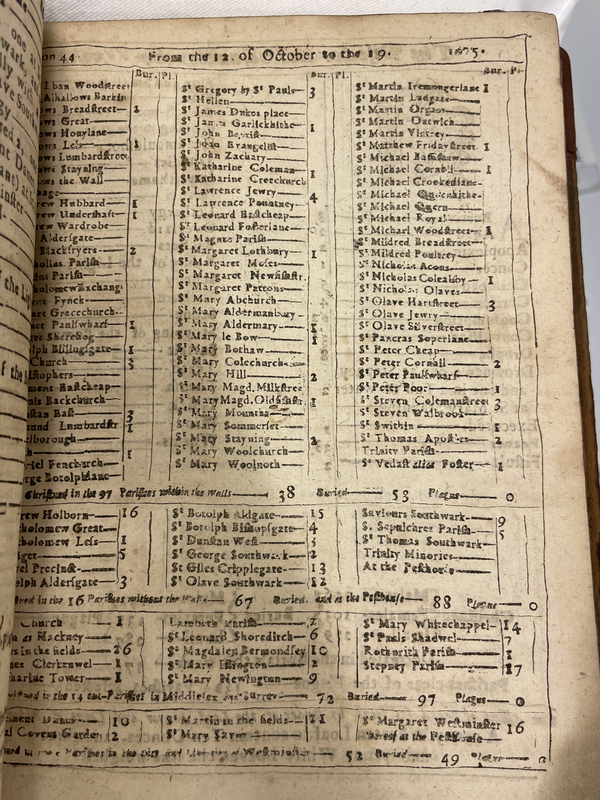 on 44 From the 12. of October to the 19. 1675.
Bur. Pl. Bur. Pl. Bur. Pl.
lban Woodstreet
Alhallows Barkin
ws Breadstreet 1
ws Great
ws Honylane
ws Less 1
ws Lumbardstreet
ws Stayning
ws the Wall
hage
rew Hubbard 1
rew Undershaft 1
rew Wardrobe
Aldersgate
Blackfryers 2
holins Parish
ns Parish
holomewExchang
net Fynck
net Paulswharf 1
net Sherehog
olph Billingsgate 1
Church 3
istophers
ment Eastcheap
nis Backchurch
nstan East 3
und Lumbardstr 1
lborough
h 1
riel Fenchurch
rge Botolphlane
St Gregory by St Pauls 3
St Hellen
St James Dukes place
St James Garlickhithe 1
St John Baptist
St John Evangelist
St John Zachary
St Katharine Coleman 1
St Katharine Creechurch
St Lawrence Jewry
St Lawrence Pountney 4
St Leonard Eastcheap
St Leonard Fosterlane
St Magnus Parish
St Margaret Lothbury 1
St Margaret Moses
St Margaret Newfishstr.
St Margaret Pattons
St Mary Abchurch
St Mary Aldermanbury
St Mary Aldermary 1
St Mary le Bow 1
St Mary Bothaw
St Mary Colechurch
St Mary Hill 2
St Mary Magd. Milkstreet
St Mary Magd. Oldfishstr. 1
St Mary Mounthaw
St Mary Sommerset
St Mary Stayning
St Mary Woolchurch
St Mary Woolnoth
St Martin Iremongerlane 1
St Martin Ludgate
St Martin Orgars
St Martin Outwich
St Martin Vintrey
St Matthew Fridaystreet 1
St Michael Bassishaw
St Michael Cornhil 1
St Michael Crookedlane
St Michael Queenhithe
St Michael Quern
St Michael Royal
St Michael Woodstreet 1
St Mildred Breadstreet
St Mildred Poultrey
St Nicholas Acons
St Nicholas Coleabby 1
St Nicholas Olaves
St Olave Hartstreet 3
St Olave Jewry
St Olave Silverstreet
St Pancras Soperlane
St Peter Cheap
St Peter Cornhil 2
St Peter Paulswharf
St Peter Poor 1
St Steven Colemanstreet 3
St Steven Walbrook
St Swithin 1
St Thomas Apostles 2
Trinity Parish
St Vedast alias Foster 1
Christned in the 97 Parishes within the walls 38 Buried 53 Plague 0
rew Holborn 16
holomew Great
holomew Less 1
get 5
el Precinct
olph Aldersgate 3
St Botolph Aldgate 15
St Botolph Bishopsgate 4
St Dunstan West 3
St George Southwark 2
St Giles Cripplegate 13
St Olave Southwark 12
Saviours Southwark 9
S. Sepulchres Parish 5
St Thomas Southwark
Trinity Minories
At the Pesthouse
ned in the 16 Parishes without the Walls 67 Buried, and at the Pesthouse 88 Plague 0
Church 1
at Hackney
s in the fields 26
nes Clerkenwel 1
harine Tower 1
Lambeth Parish 2
St Leonard Shoreditch 6
St Magdalen Bermondsey 10
St Mary Islington 2
St Mary Newington 9
St Mary Whitechappel 14
St Pauls Shadwel 7
Rotherith Parish 1
Stepney Parish 17
in the 14 out-Parishes in Middlesex and Surrey 72 Buried 97 Plague 0
ment Danes 10
l Covent Garden 2
St Martin in the fields 21
St Mary Savoy
St Margaret Westminster 16
buried at the Pesthouse
Parishes in the City and Liberties of Westminster 52 Buried 49 Plague 0